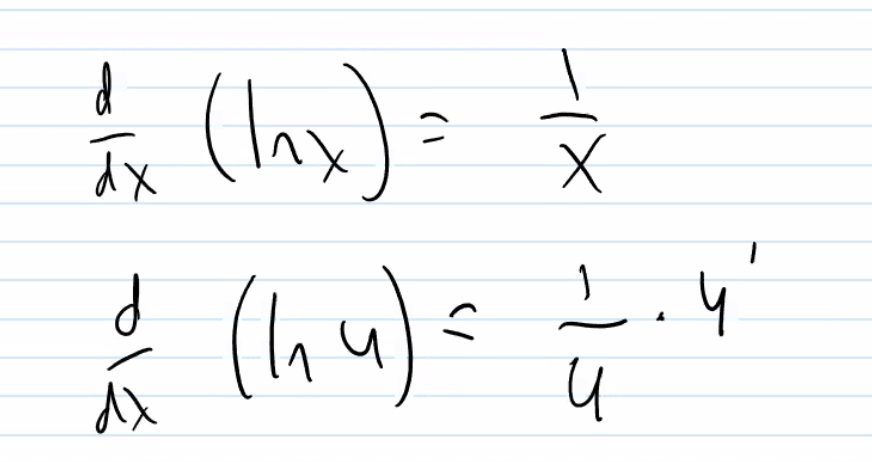 d/dx (ln x) = 1/x
d/dx (ln u) = 1/u · u'